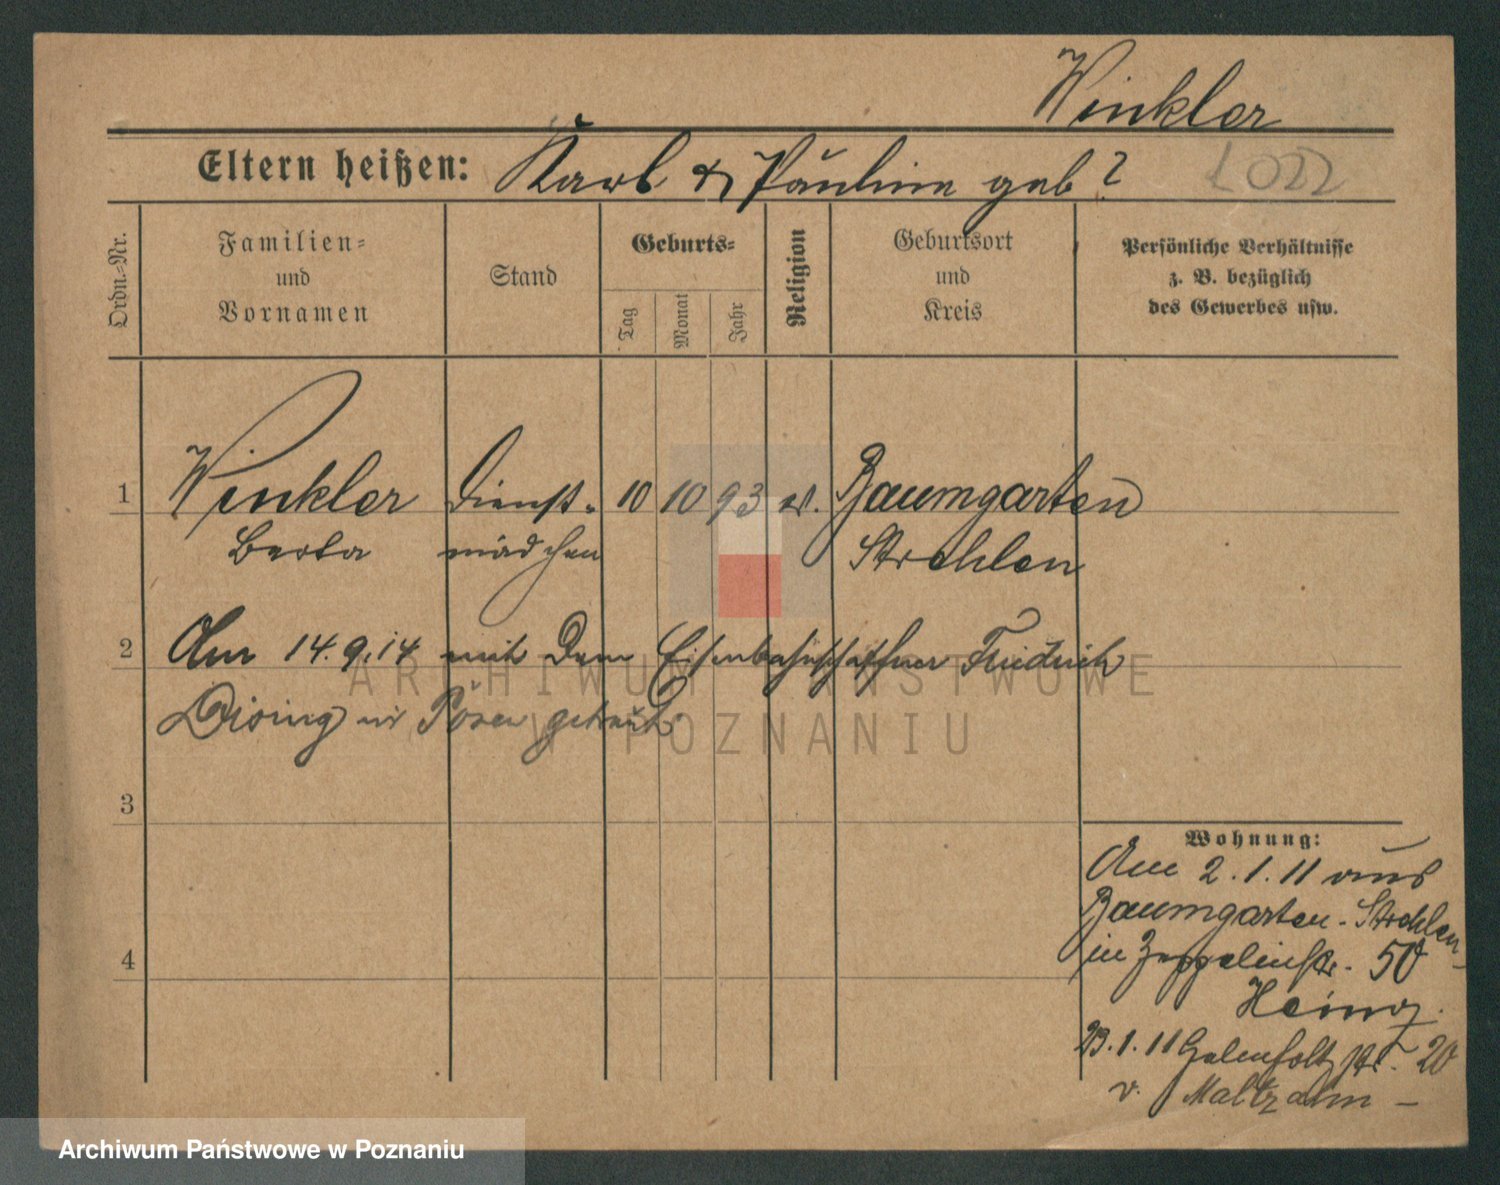 Winkler
Eltern heißen: Karl & Pauline geb?
Ordn.=Nr.
Familien=
und
Vornamen
Stand
Geburts=
Tag
Monat
Jahr
Religion
Geburtsort
und
Kreis
Persönliche Verhältnisse
z. B. bezüglich
des Gewerbes usw.
1 Winkler Dienst- 10 10 93 ev. Baumgarten
Berta mädchen Strehlen
2 Am 14.9.14 mit dem Eisenbahnschaffner Friedrich
in Posen getraut.
3
4
Wohnung:
Am 2.1.11 aus
Baumgarten-Strehlen
in Zeppelinstr. 50
23.1.11 str. 20
v. Maltzahn
ARCHIWUM PAŃSTWOWE
W POZNANIU
Archiwum Państwowe w Poznaniu